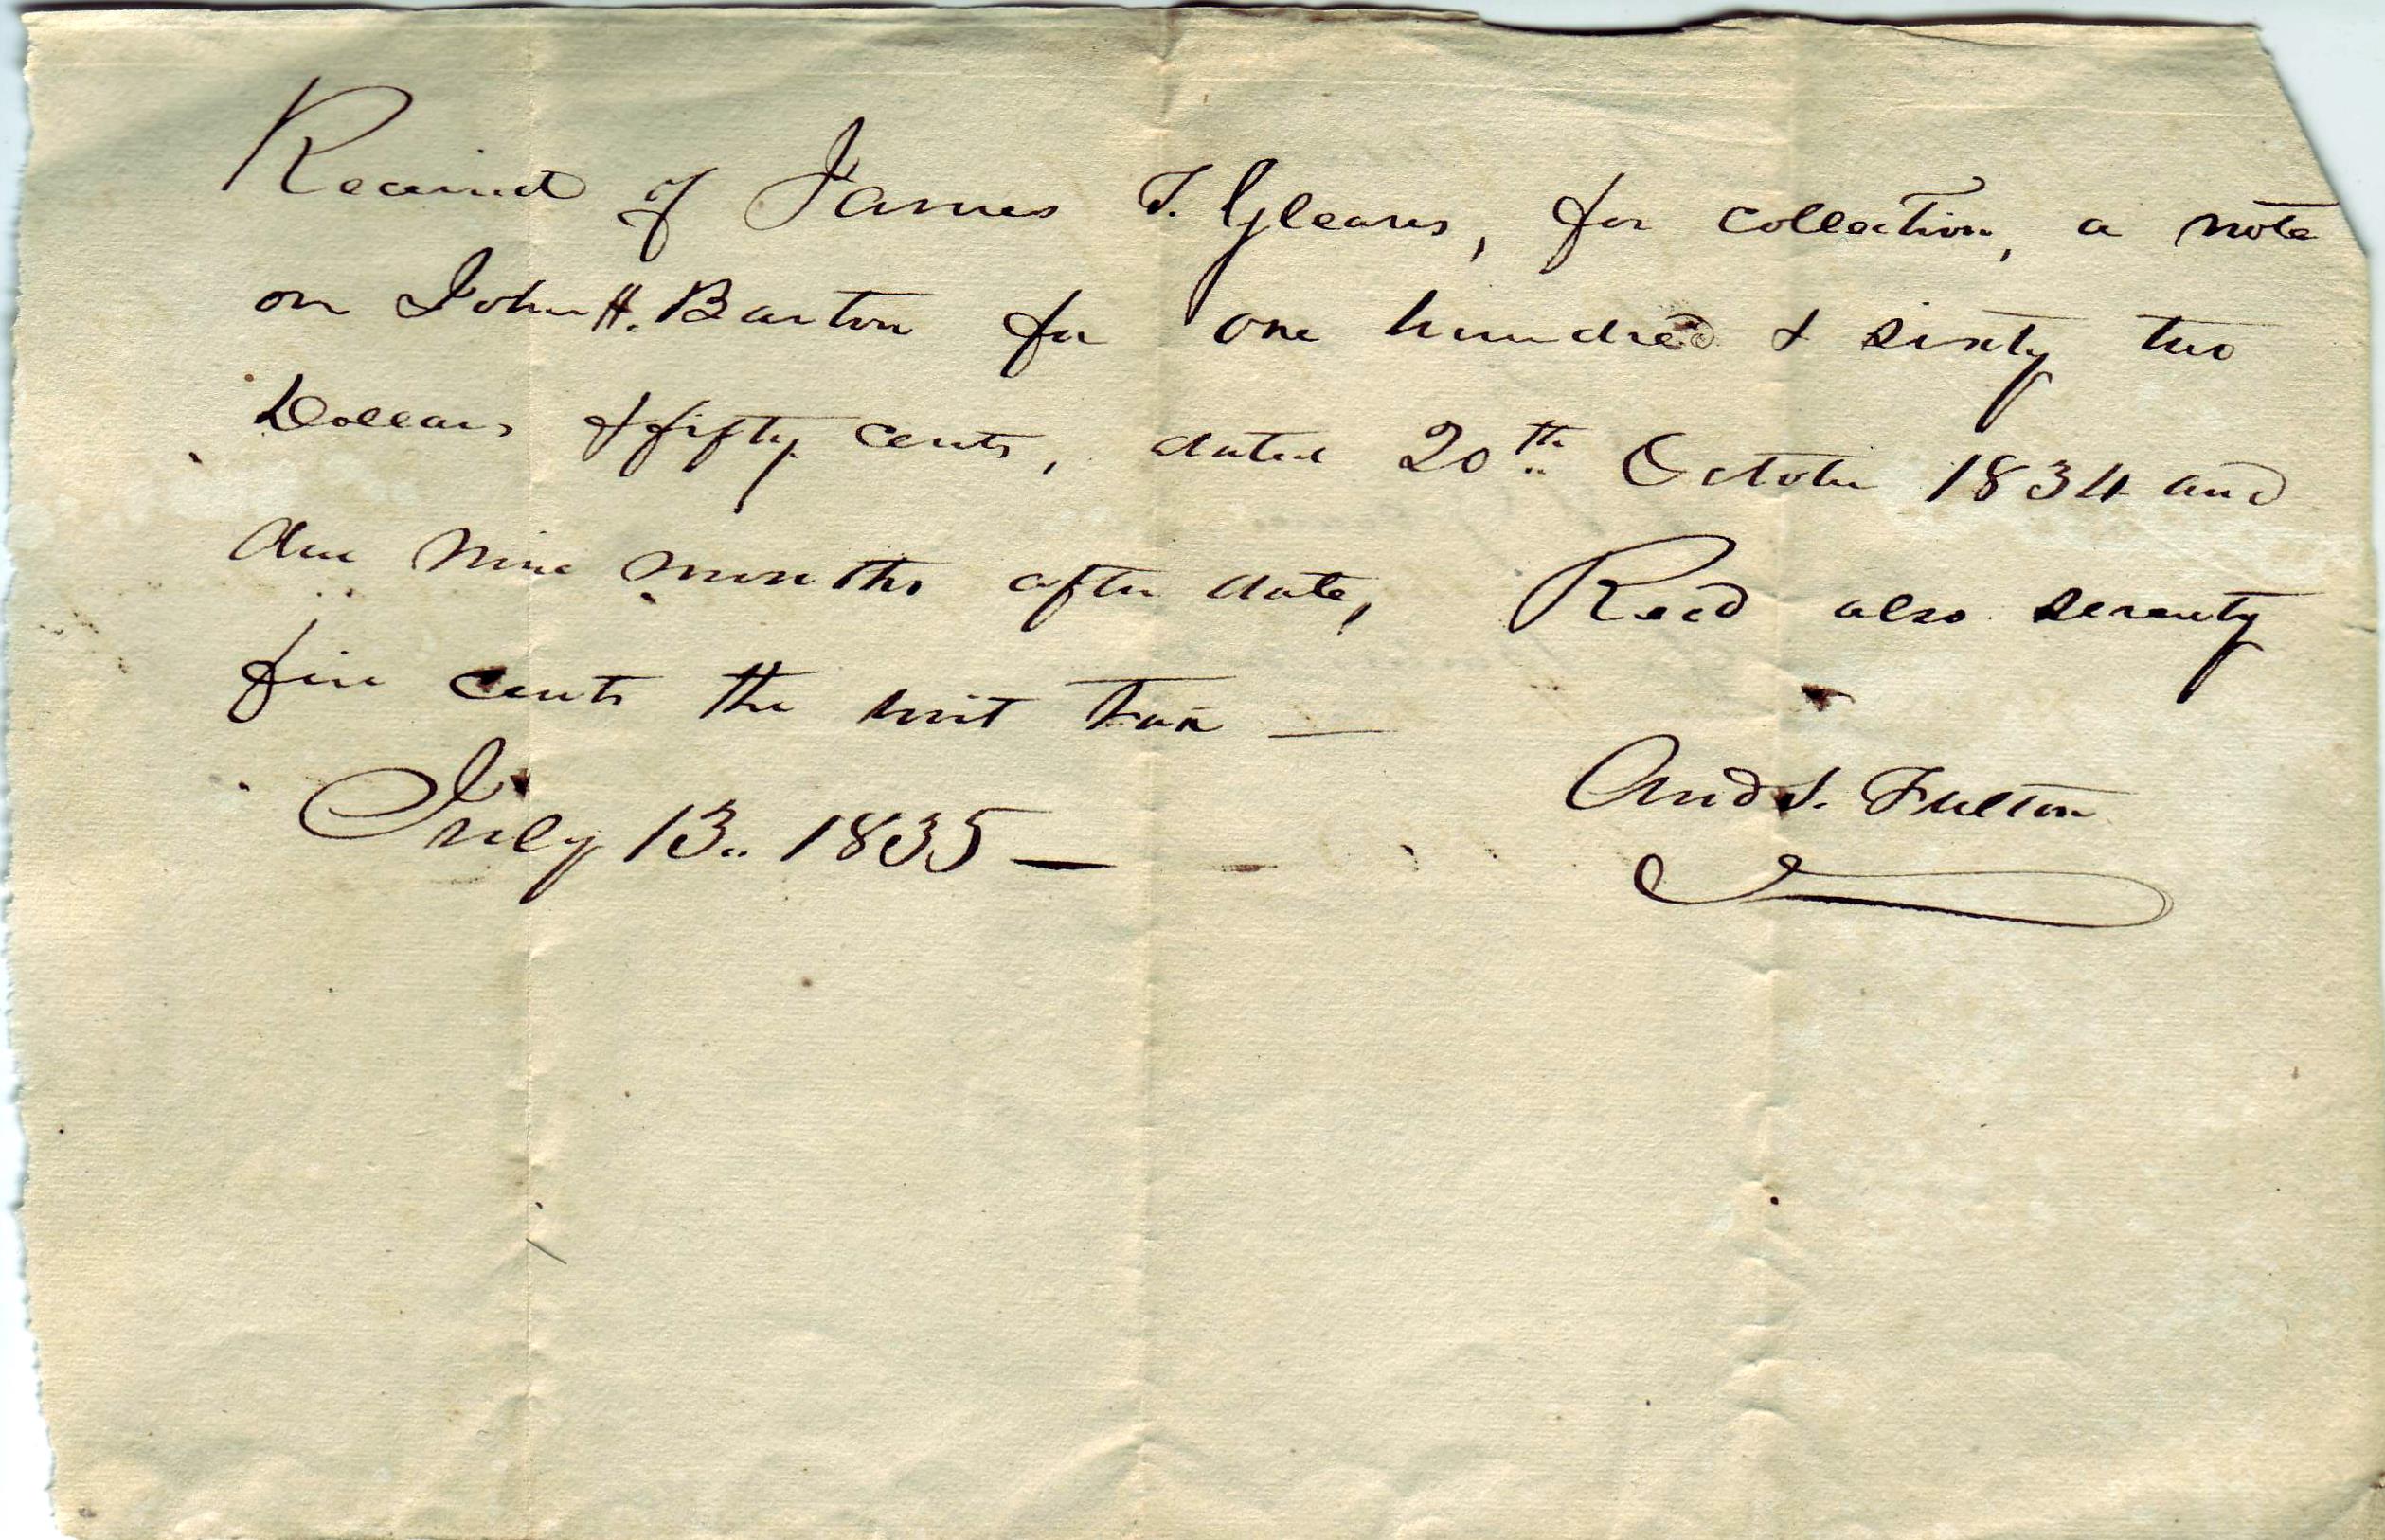 Received of James T. Gleaves, for collection, a note
on John H. Barton for one hundred & sixty two
Dollars & fifty cents, dated 20th October 1834 and
due nine months after date, Recd also seventy
five cents the writ tax —
And S. Fulton
July 13.. 1835 —